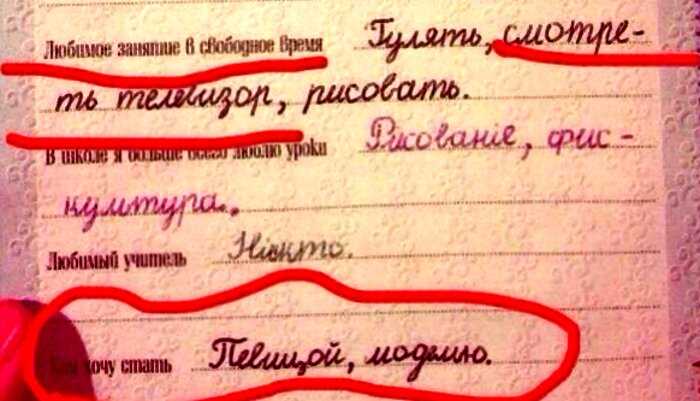 Любимое занятие в свободное время Гулять, смотре-
ть телевизор, рисовать.
В школе я больше всего люблю уроки Рисование, физ-
культура.
Любимый учитель Никто.
хочу стать Певицой, моделью.